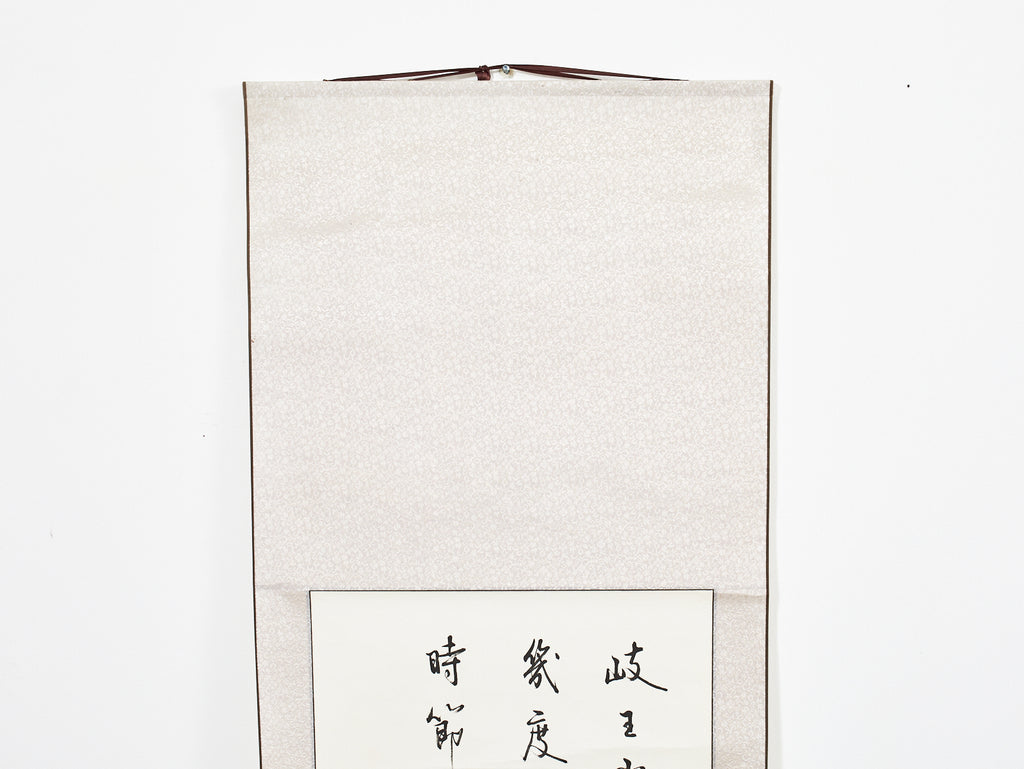 岐王
幾度
時節